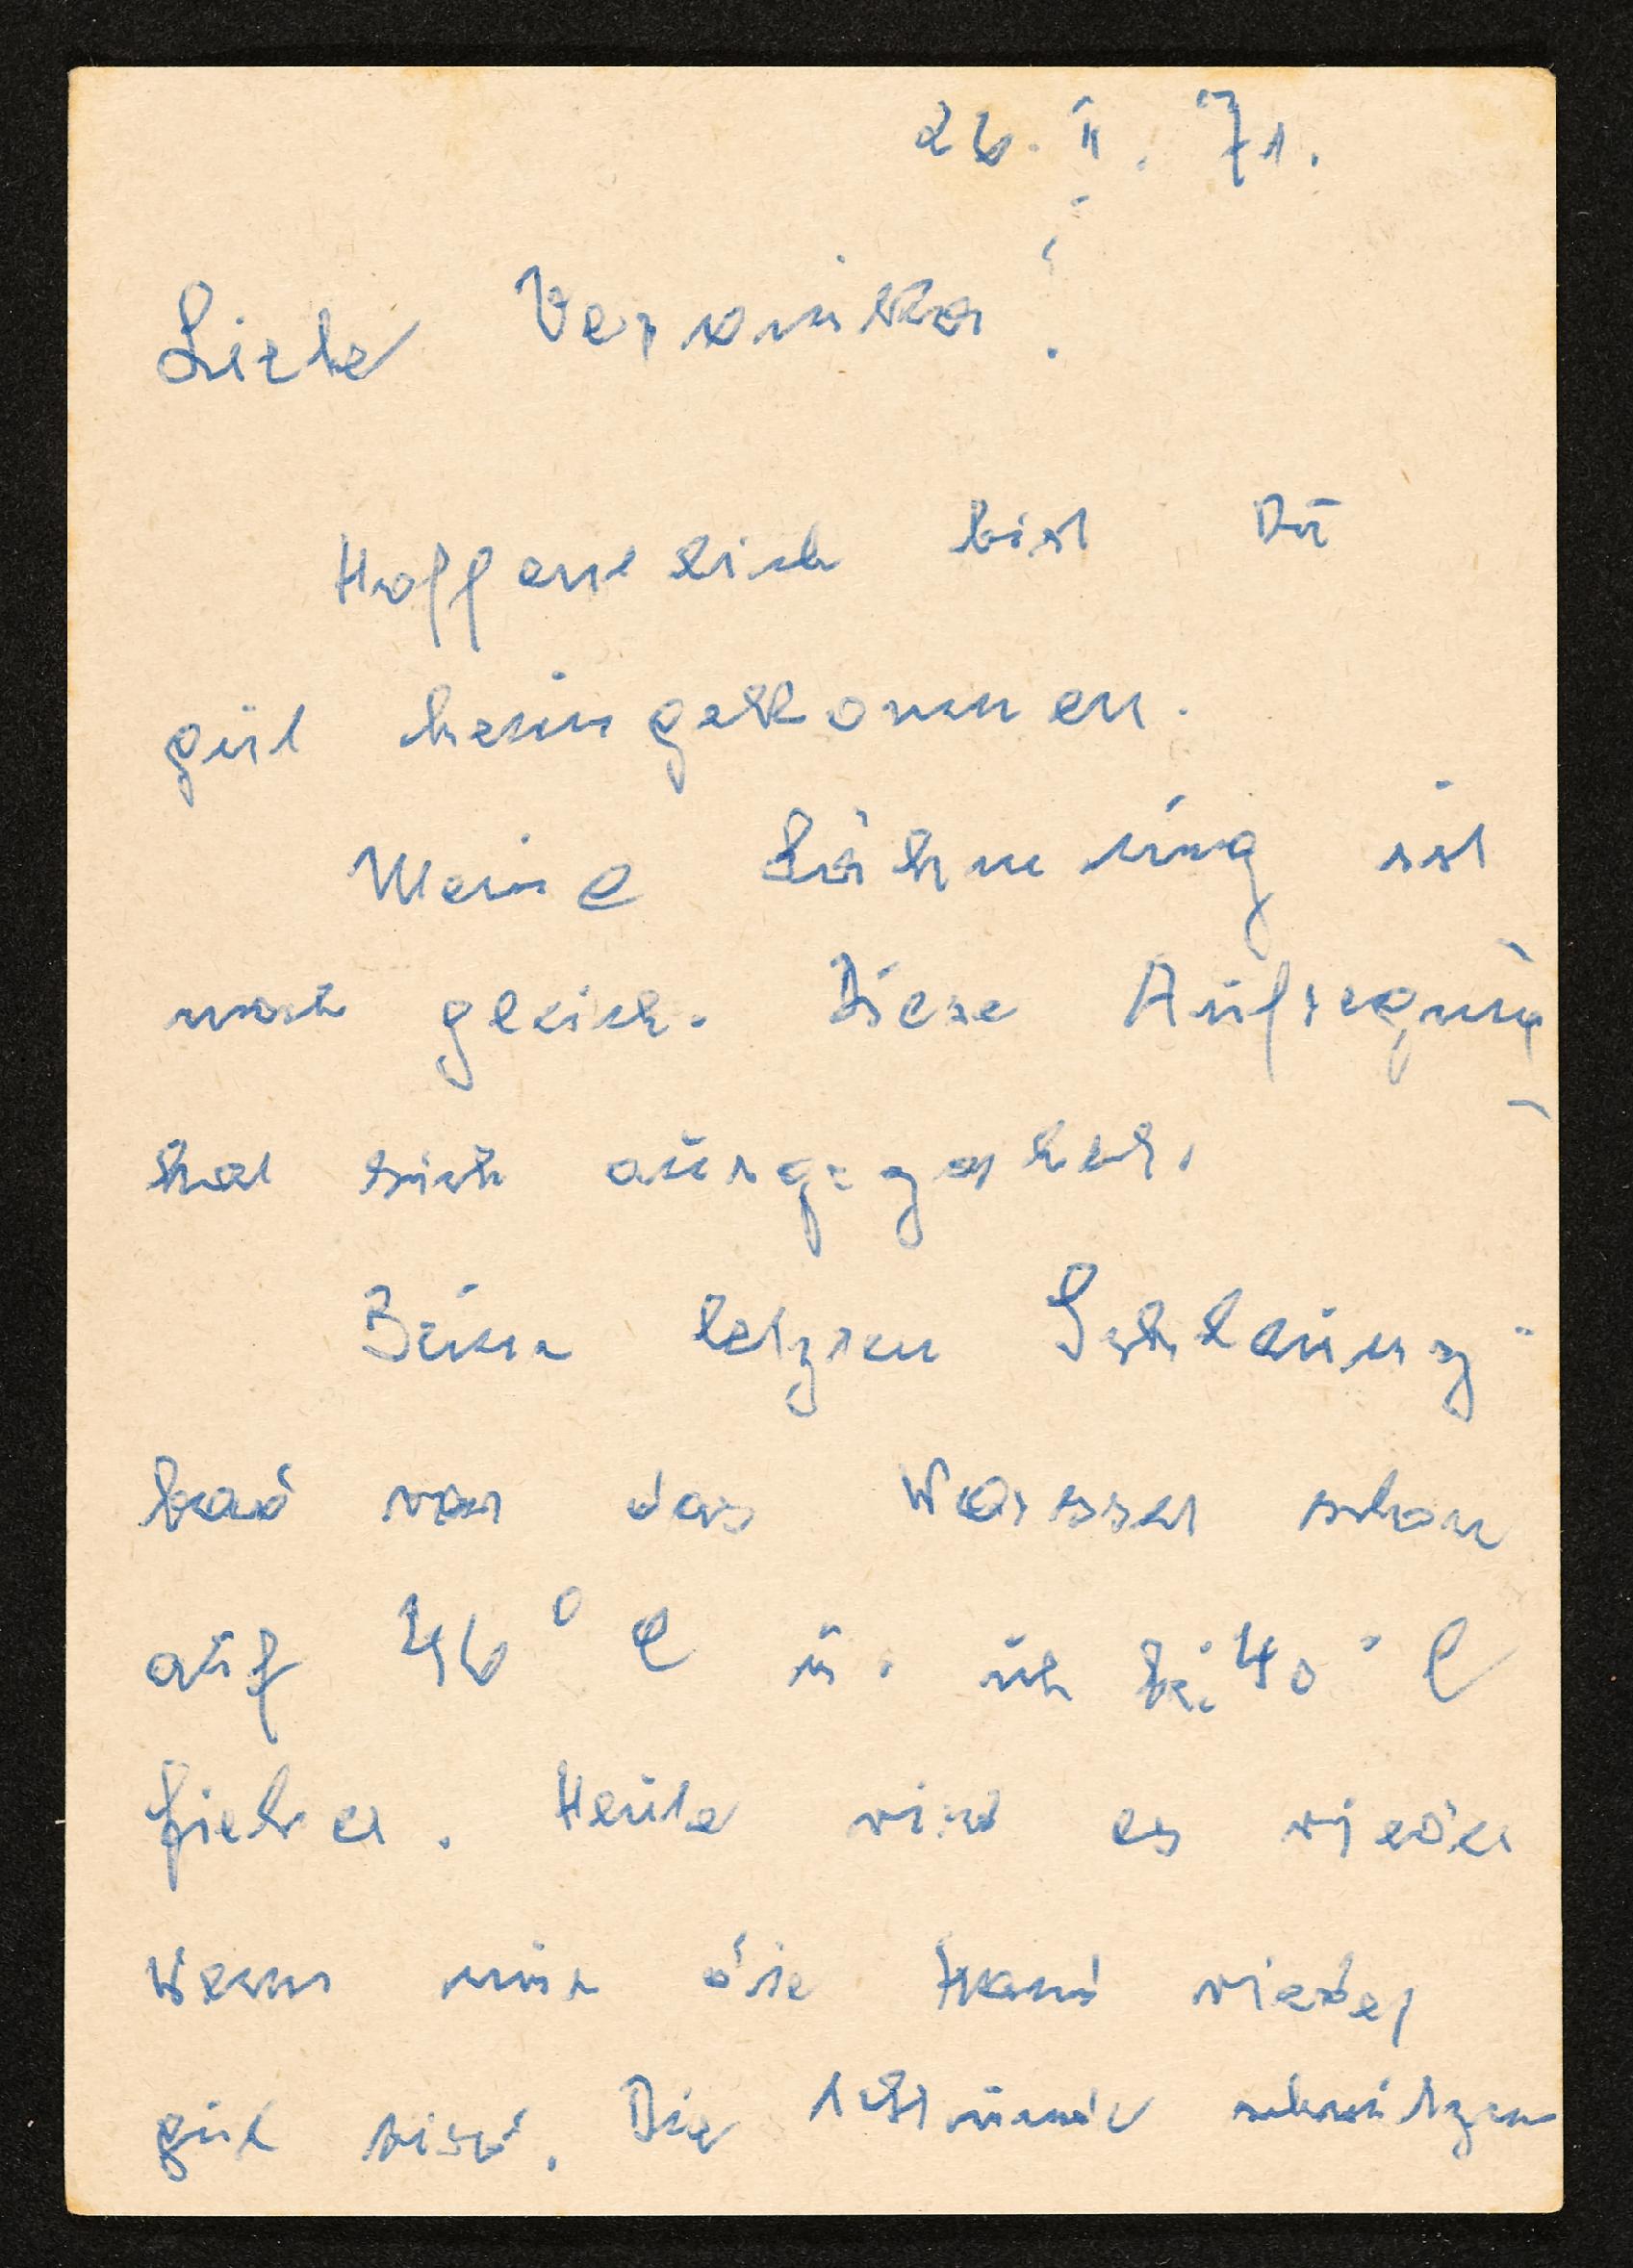 26. II. 71.
Liebe Veronika!
Hoffentlich bist Du
gut heimgekommen.
Meine Lähmung ist
noch gleich. Diese Aufregung
hat sich ausgegartet.
Beim letzten Schleimz-
bad war das Wasser schon
auf 46° C u. ich 40° C
fieber. Heute wird es wieder
Wenn nur die Hand wieder
gut wird. Die 1 Stunde schwitzen